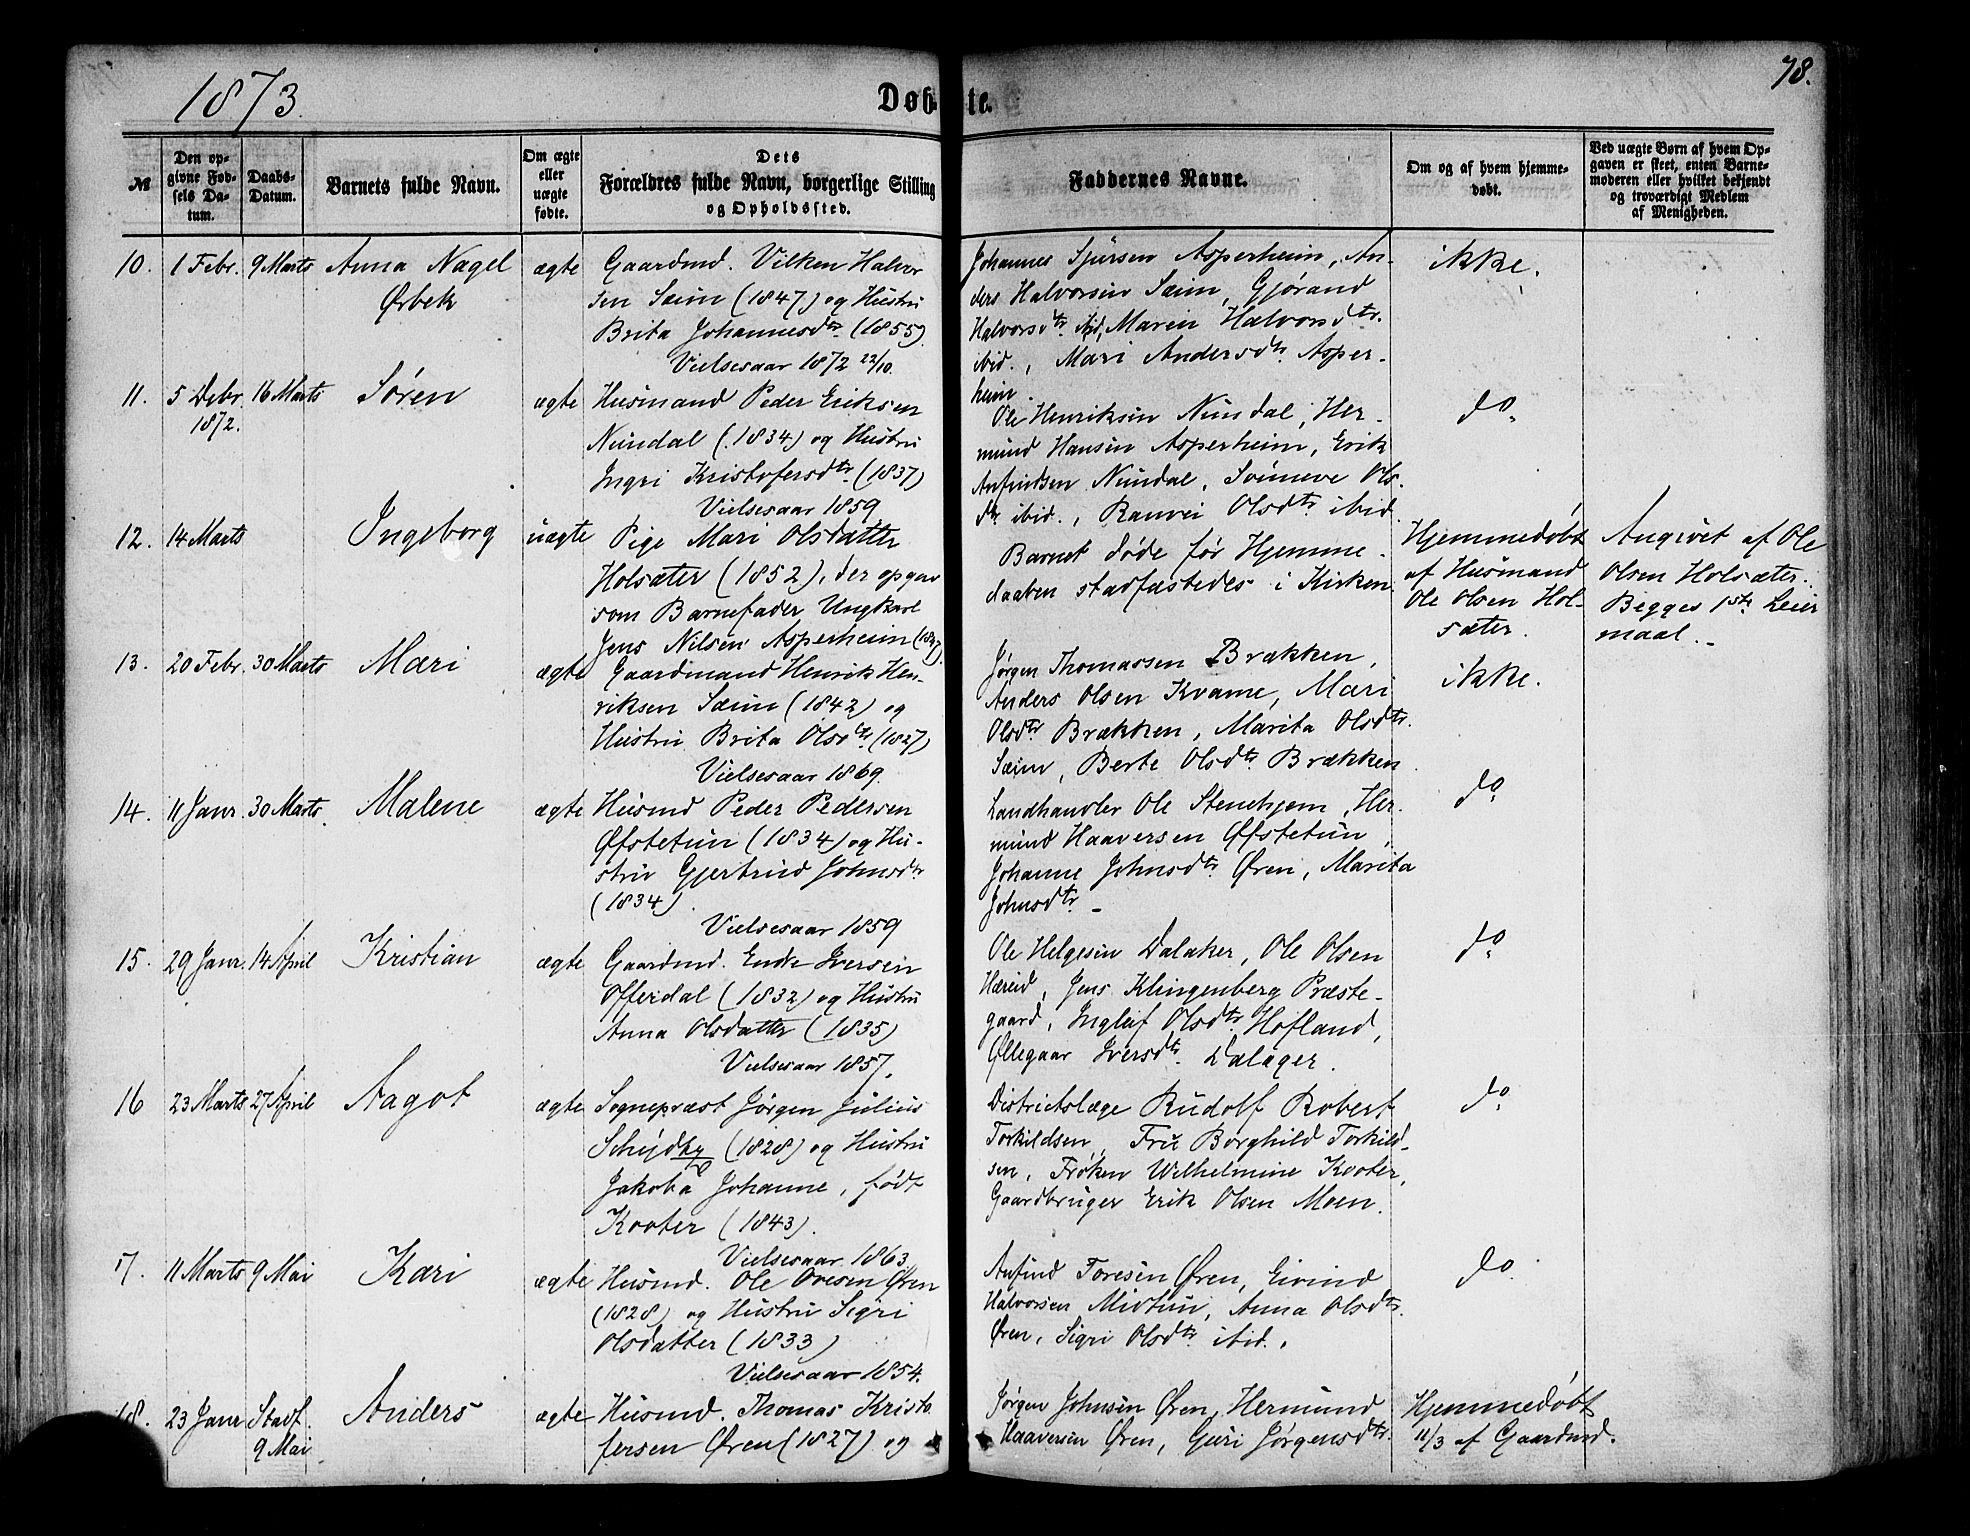 1873.
Døbte.
78.
№
Den opgivne Fødsels Datum.
Daabs-Datum.
Barnets fulde Navn.
Om ægte eller uægte fødte.
Dets Forældres fulde Navn, borgerlige Stilling og Opholdssted.
Faddernes Navne.
Om og af hvem hjemmedøbt.
Ved uægte Børn af hvem Opgaven er skeet, enten Barnemoderen eller hvilket bekjendt og troværdigt Medlem af Menigheden.
10. 1 Febr. 9 Marts Anna Nagel
Ørbek
ægte
Gaardmd. Vilken Halvor
sen Sæim (1847) og Hustru
Brita Johannesdtr. (1855)
Vielsesaar 1872 22/10.
Johannes Sjursen Asperheim, An-
ders Halvorsen Sæim, Gjørand
Halvorsdtr. ibid, Maren Halvorsdtr.
ibid., Mari Andersdtr. Asper-
heim.
ikke.
11. 5 Debr. 16 Marts Søren
1872.
ægte
Husmand Peder Eriksen
Nundal (1834) og Hustru
Ingri Kristofersdtr. (1837)
Vielsesaar 1859
Ole Henriksen Nundal, Her-
mund Hansen Asperheim, Erik
Anfindsen Nundal, Svineve Ols-
dtr. ibid., Ranvei Olsdtr ibid.
do.
12. 14 Marts Ingeborg
uægte
Pige Mari Olsdatter
Holsæter (1852), der opgav
som Barnefader Ungkarl
Jens Nilsen Asperheim
Barnet døde før Hjemme-
daaben stadfæstedes i Kirken.
Hjemmedøbt
af Husmand
Ole Olsen Hol-
sæter.
Angivet af Ole
Olsen Holsæter.
Begges 1ste Leier
maal. -
13. 20 Febr. 30 Marts Mari
ægte
Gaardmand Henrik Hen-
riksen Sæim (1842) og
Hustru Brita Olsdtr. (1827)
Vielsesaar 1869.
Jørgen Thomassen Brækken,
Anders Olsen Kvame, Mari
Olsdtr. Brækken, Marita Olsdtr.
Sæim, Berte Olsdtr. Brækken.
ikke.
14. 11 Janr. 30 Marts. Malene
ægte
Husmd Peder Pedersen
Øfstetun (1834) og Hu-
stru Gjertrud Johnsdtr
(1834)
Vielsesaar 1859
Landhandler Ole Stenehjem, Her-
mund Haaversen Øfstetun,
Johanne Johnsdtr. Øren, Marita
Johnsdtr. -
do
15. 29 Janr. 14 April Kristian
ægte
Gaardmd. Endre Iversen
Offerdal (1832) og Hustru
Anna Olsdatter (1835)
Vielsesaar 1857.
Ole Helgesen Dalaker, Ole Olsen
Hæreid, Jens Klingenberg Præste-
gaard, Ingleif Olsdtr. Hofland,
Øllegaar Iversdtr. Dalager.
do
16 23 Marts 27 April Aagot
ægte
Sognepræst Jørgen Julius
Schydby (1828) og Hustru
Jakoba Johanne, født
Kooter (1843).
Vielsesaar 1863.
Districtslæge Rudolf Robert
Torkildsen, Fru Borghild Torkild-
sen, Frøken Wilhelmine Kooter,
Gaardbruger Erik Olsen Moen.
do
17. 11 Marts 9 Mai Kari
ægte
Husmd. Ole Ovesen Øren
(1828) og Hustru Sigri
Olsdatter (1833)
Vielsesaar 1854.
Anfind Toresen Øren, Eivind
Halvorsen Midtun, Anna Olsdtr.
Øren, Sigri Olsdtr. ibid.
do.
18. 23 Janr Stadf. Anders
9 Mai
ægte
Husmd. Thomas Kristo
fersen Øren (1827) og
Jørgen Johnsen Øren, Hermund
Haaversen Øren, Guri Jørgensdtr.
Hjemmedøbt
11/3 af Gaardmd.